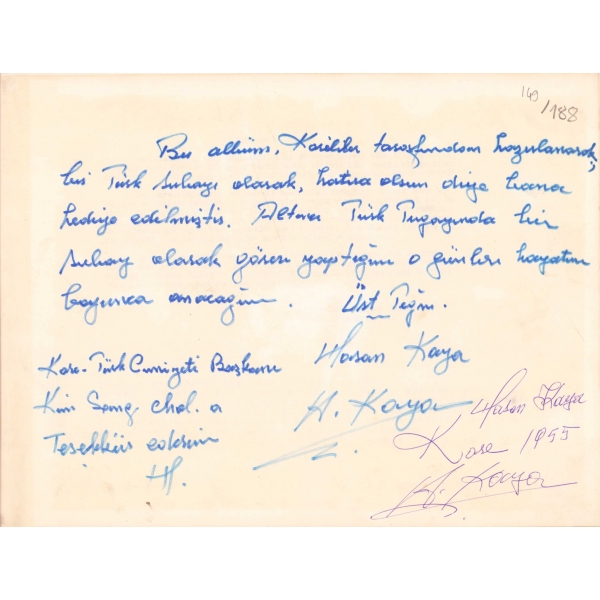 149
/188
Bu albüm, Koreliler tarafından hazırlanarak,
bir Türk subayı olarak, hatıra olsun diye bana
hediye edilmiştir. Altıncı Türk Tugayında bir
subay olarak görev yaptığım o günleri hayatım
boyunca anacağım. Üst Teğm.
Hasan Kaya
Kore-Türk Cemiyeti Başkanı
Kim Sang, chol. a
Teşekkür ederim
H. Kaya
H.
Hasan Kaya
Kore 1955
H. Kaya